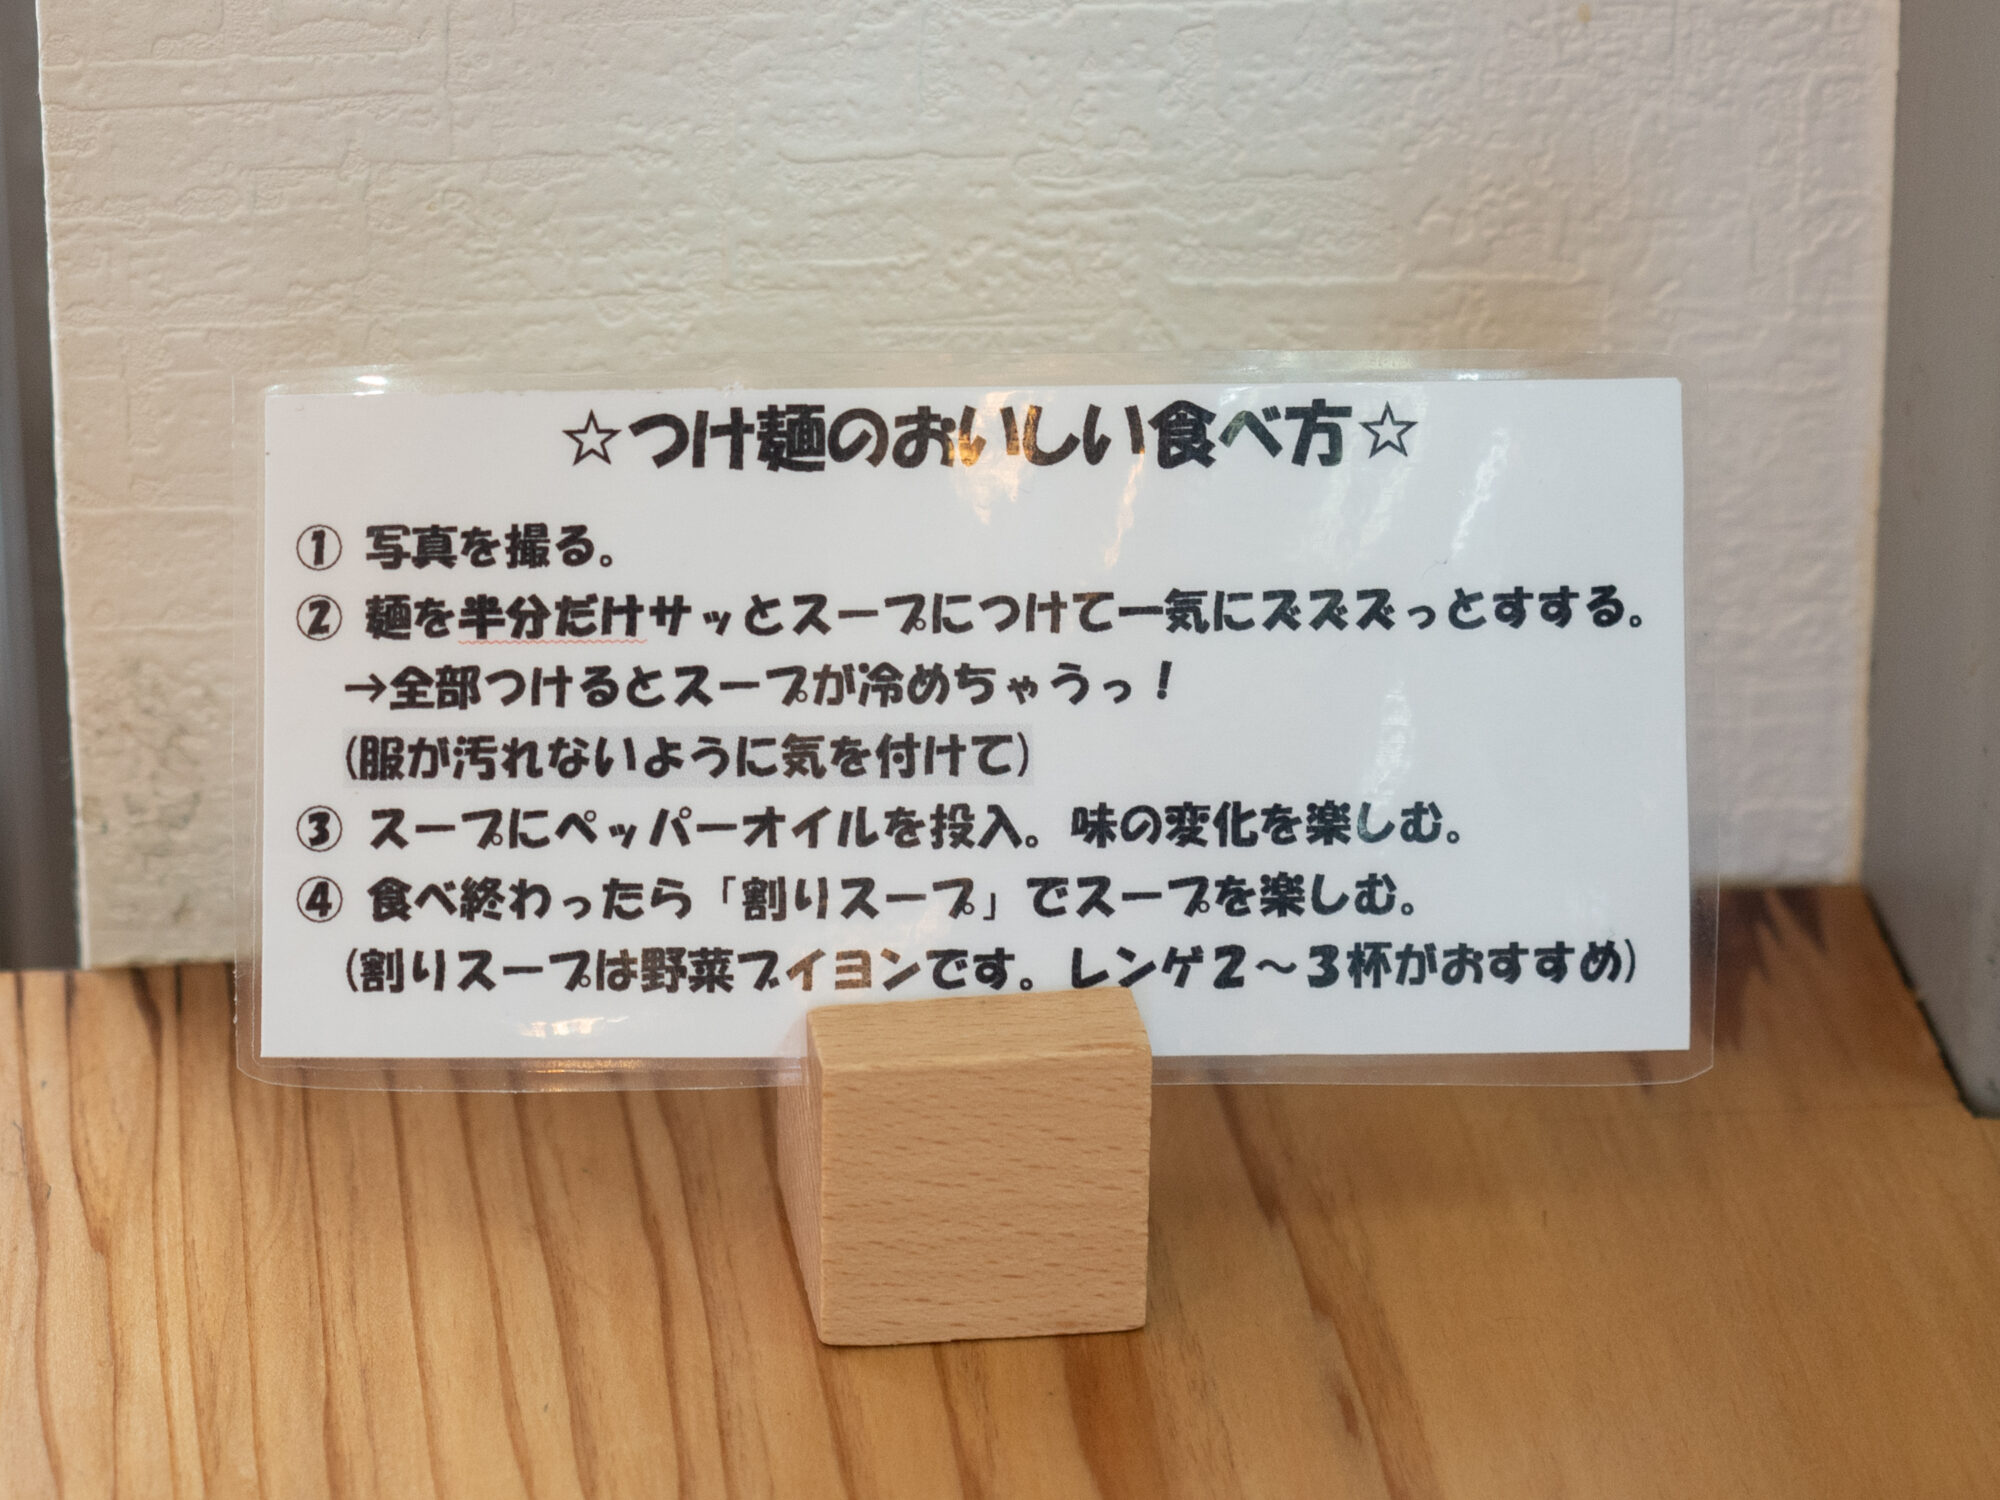 ☆つけ麺のおいしい食べ方☆
① 写真を撮る。
② 麺を半分だけサッとスープにつけて一気にズズズっとすする。
→全部つけるとスープが冷めちゃうっ！
(服が汚れないように気を付けて)
③ スープにペッパーオイルを投入。味の変化を楽しむ。
④ 食べ終わったら「割りスープ」でスープを楽しむ。
(割りスープは野菜ブイヨンです。レンゲ２～３杯がおすすめ)